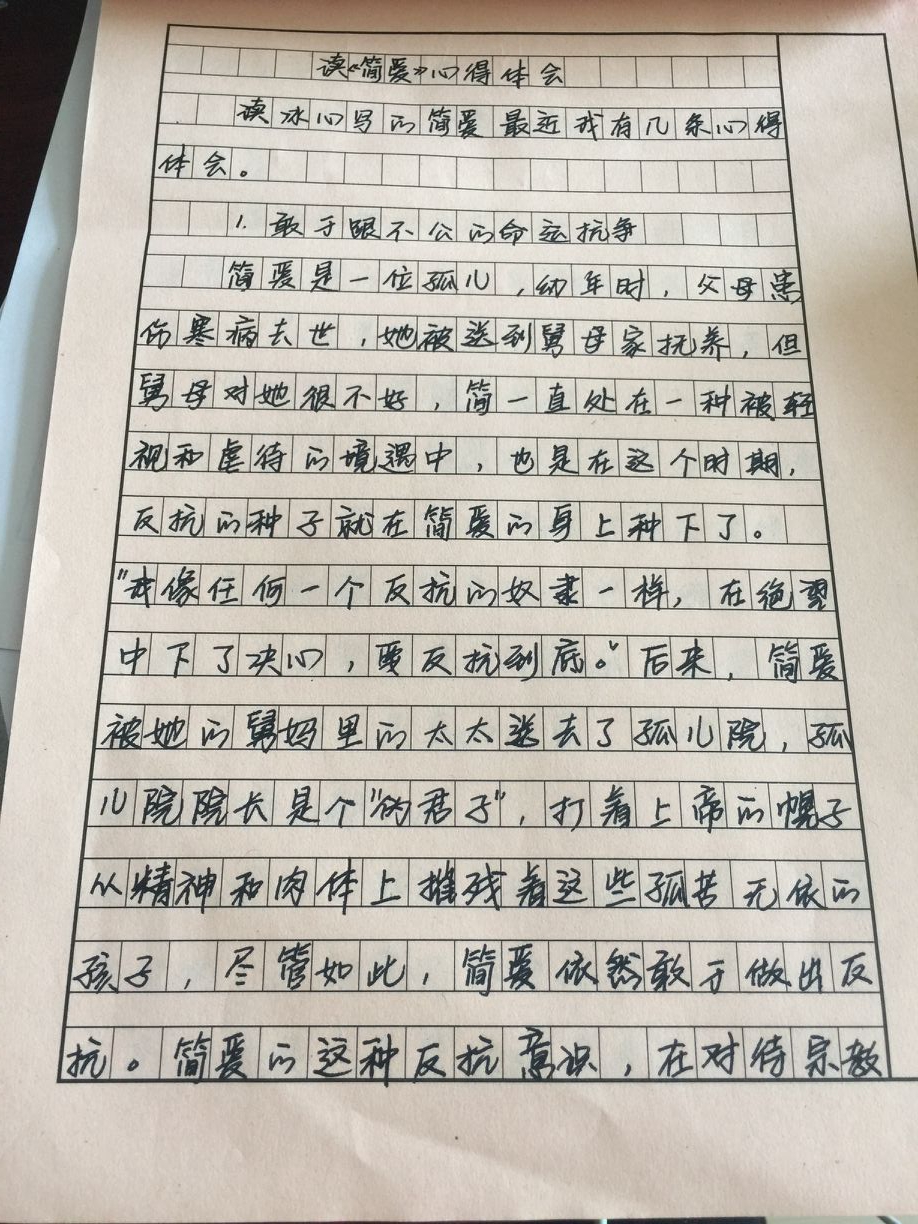 读《简爱》心得体会
读冰心写的简爱最近我有几条心得
体会。
1.敢于跟不公的命运抗争
简爱是一位孤儿,幼年时,父母患
伤寒病去世,她被送到舅母家抚养,但
舅母对她很不好,简一直处在一种被轻
视和虐待的境遇中,也是在这个时期,
反抗的种子就在简爱的身上种下了。
"我像任何一个反抗的奴隶一样,在绝望
中下了决心,要反抗到底。"后来,简爱
被她的舅妈里的太太送去了孤儿院,孤
儿院院长是个"伪君子",打着上帝的幌子
从精神和肉体上摧残着这些孤苦无依的
孩子,尽管如此,简爱依然敢于做出反
抗。简爱的这种反抗意识,在对待宗教